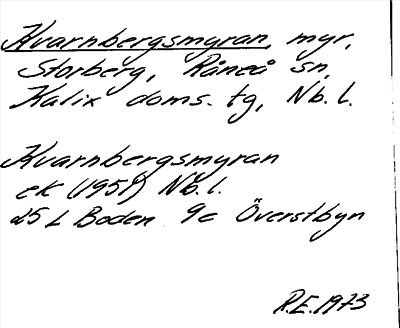 Kvarnbergsmyran, myr,
Storberg, Råneå sn,
Kalix doms. tg, Nb. l.
Kvarnbergsmyran
ek (1951) Nb. l.
25 L Boden 9c Överstbyn
R.E. 1973